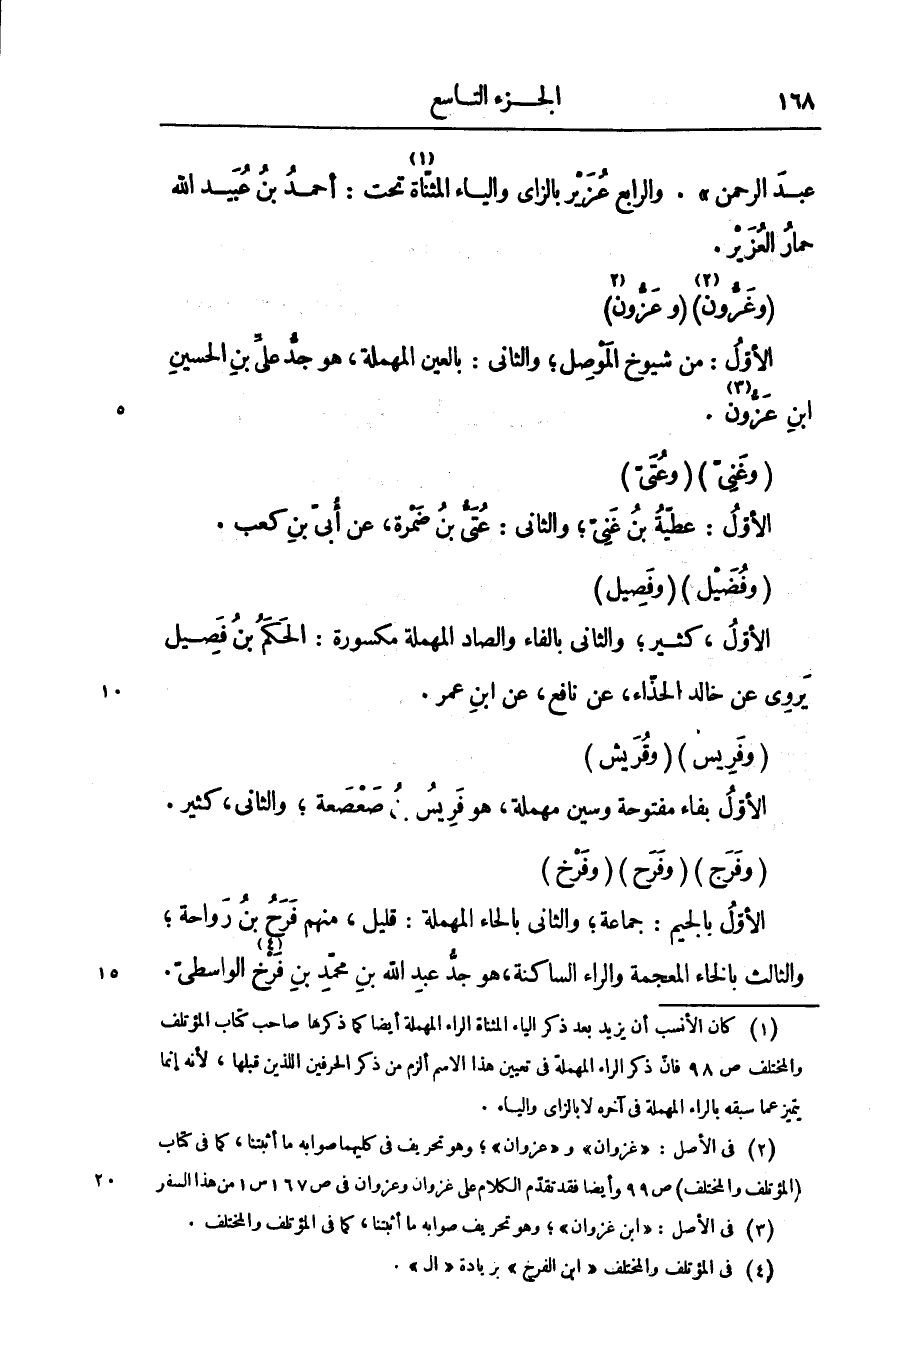 ١٦٨ الجـزء التـاسع
عبـدَ الرحمن» . والرابع عُزَيْر بالزاى واليـاء المثنّاة (١) تحت : أحمـدُ بنُ عُبَيـد الله
حمارُ العُزَيْر .
(وغَرُّون) (٢) (و عَزُّون) (٢)
الأوّلُ : من شيوخ المَوْصِل؛ والثانى : بالعين المهملة، هو جدُّ علىِّ بنِ الحسينِ
ابنِ عَزُّون (٣) . ٥
(وغَنِىّ) (وعُتَىّ)
الأوّلُ : عطيّةُ بنُ غَنِىّ؛ والثانى : عُتَىُّ بنُ ضَمْرة، عن أُبىّ بنِ كعب .
(وفُضَيْل) (وفَصِيل)
الأوّلُ ، كثـير؛ والثانى بالفاء والصاد المهملة مكسورة : الحَكَمُ بنُ فَصِـيل
يَروِى عن خالد الحذّاء، عن نافع، عن ابنِ عمر . ١٠
(وفَرِيس) (وقُرَيش)
الأوّلُ بفاء مفتوحة وسين مهملة، هو فَرِيسُ بنُ صَعْصَعة ؛ والثانى، كثير .
(وفَرَج) (وفَرَح) (وفَرْخ)
الأوّلُ بالجيم : جماعة؛ والثانى بالحاء المهملة : قليل ، منهم فَرَحُ بنُ رَواحة ؛
والثالث بالخاء المعجمة والراء الساكنة، هو جدُّ عبدِ الله بنِ محمّدِ بنِ فَرْخ (٤) الواسطىّ . ١٥
(١) كان الأنسب أن يزيد بعد ذكر الياء المثناة الراء المهملة أيضا كما ذكرها صاحب كتاب المؤتلف
والمختلف ص ٩٨ فانّ ذكر الراء المهملة فى تعيين هذا الاسم ألزم من ذكر الحرفين اللذين قبلها ، لأنه إنما
يتميز عما سبقه بالراء المهملة فى آخره لا بالزاى والياء .
(٢) فى الأصل : «غزوان» و «عزوان» ؛ وهو تحريف فى كليهما صوابه ما أثبتنا ، كما فى كتاب
(المؤتلف والمختلف) ص ٩٩ وأيضا فقد تقدّم الكلام على غزوان وعزوان فى ص ١٦٧ س ١ من هذا السفر ٢٠
(٣) فى الأصل : «ابن غزوان» ؛ وهو تحريف صوابه ما أثبتنا ، كما فى المؤتلف والمختلف .
(٤) فى المؤتلف والمختلف «ابن الفرخ» بزيادة «ال» .